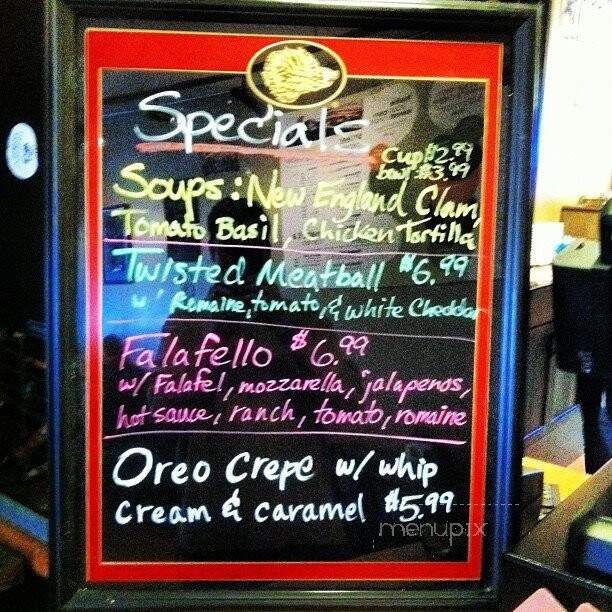 Specials
Cup $2.99
bowl $3.99
Soups: New England Clam,
Tomato Basil, Chicken Tortilla
Twisted Meatball $6.99
w/ Romaine, tomato, & white Cheddar
Falafello $6.99
w/ Falafel, mozzarella, jalapenos,
hot sauce, ranch, tomato, romaine
Oreo Crepe w/ whip
cream & caramel $5.99
menupix